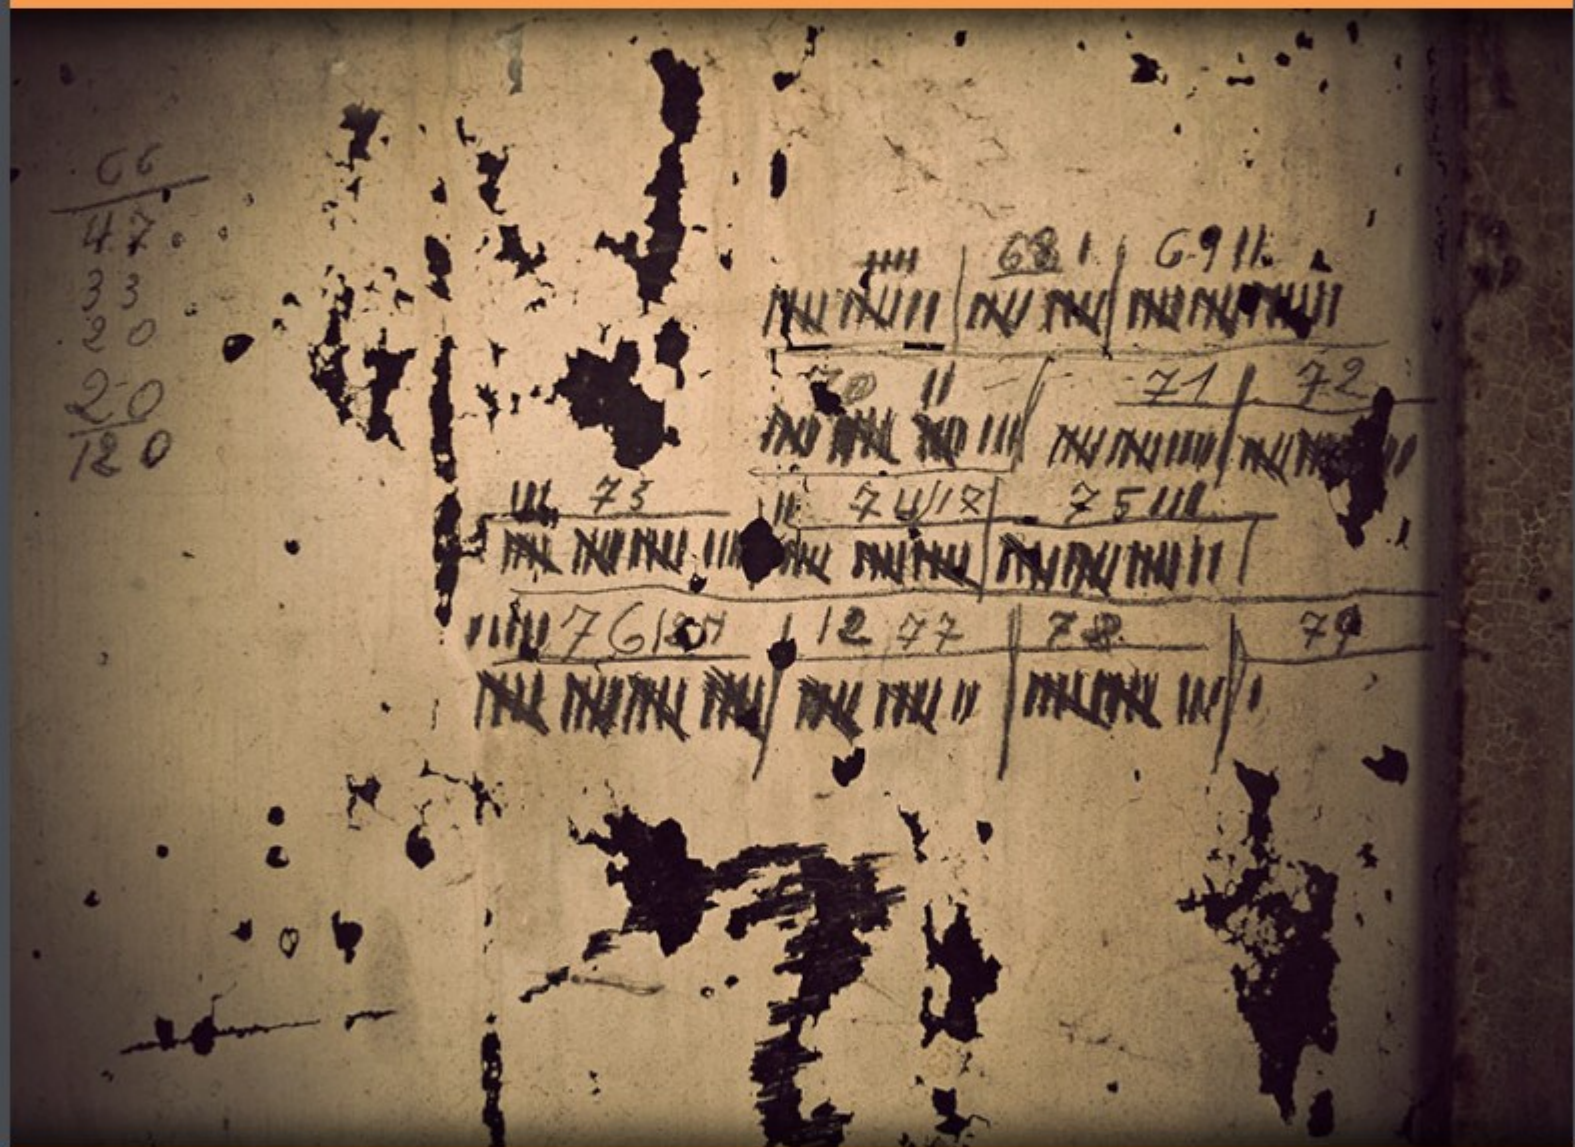 66
47
33
20
20
120
68 69
70 71 72
73 74/17 75
76 12 77 78 79